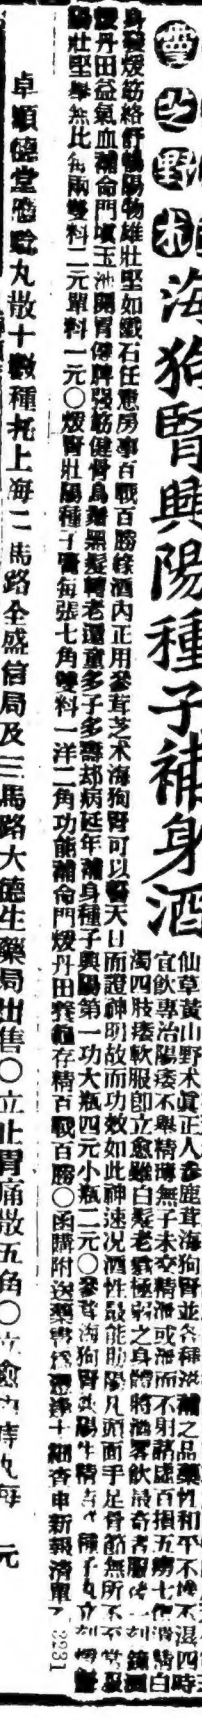 靈芝野朮海狗腎興陽種子補身酒
仙草黃山野朮眞正人參鹿茸海狗腎並各種滋補之品藥性和平不燥不濕四時
宜飲專治陽痿不興精薄無子未交精泄或泄而不射諸虛百損五癆七傷腎
濁四肢痿軟服卽立愈雖白髮老翁極弱之身體將酒畧飲最奇者服後一刻鐘
身發煖筋絡舒暢陽物雄壯堅如鐵石任意房事百戰百勝緣酒內正用參茸芝朮海狗腎可以誓天日而證神明故而功效如此神速况酒性最能助陽凡頭面手足骨節無所不至常服
煖丹田益氣血補命門填玉池開胃健脾强筋健骨烏鬚黑髮轉老還童多子多壽却病延年補身種子興陽第一功大瓶四元小瓶二元〇參茸海狗腎興陽生精種子丸立刻
陽壯堅擧無比每兩雙料二元單料一元〇煖腎壯陽種子膏每張七角雙料一洋二角功能補命門煖丹田養龜存精百戰百勝〇函購附送藥書細查申新報濟單
卓順德堂應騐丸散十數種托上海二馬路全盛信局及三馬路大德生藥局出售〇立止胃痛散五角〇立愈痔丸每元